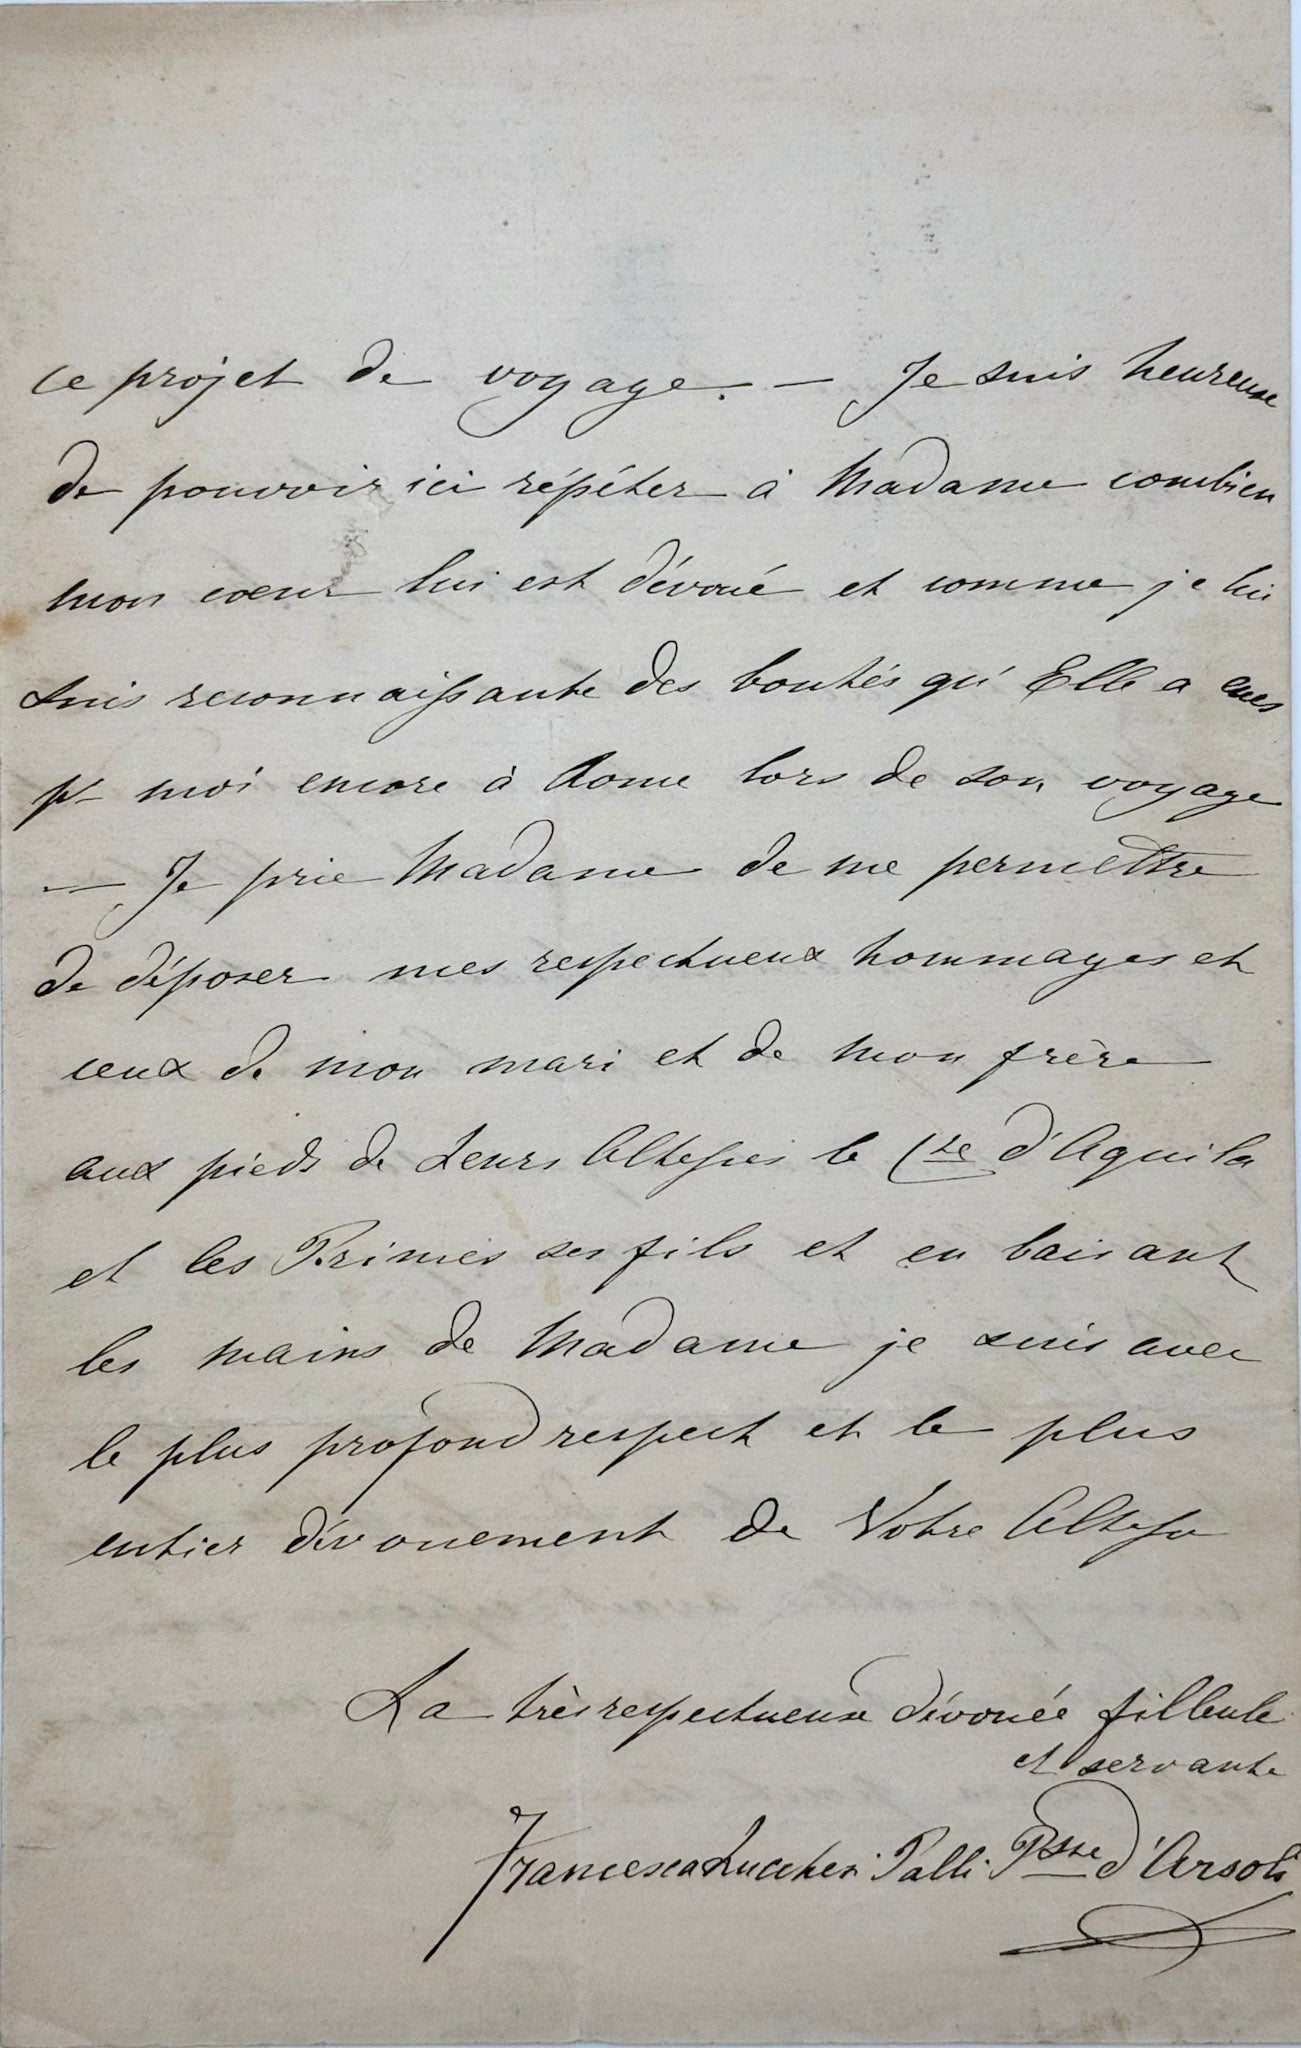 ce projet de voyage. — Je suis heureuse
de pouvoir ici répéter à Madame combien
mon cœur lui est dévoué et comme je lui
suis reconnaissante des bontés qu'Elle a eues
pr moi encore à Rome lors de son voyage
— Je prie Madame de me permettre
de déposer mes respectueux hommages et
ceux de mon mari et de mon frère
aux pieds de Leurs Altesses le Cte d'Aquila
et les Princes ses fils et en baisant
les mains de Madame je suis avec
le plus profond respect et le plus
entier dévouement de Votre Altesse
La très respectueuse dévouée filleule
et servante
Francesca Lucchesi Palli Psse d'Arsoli